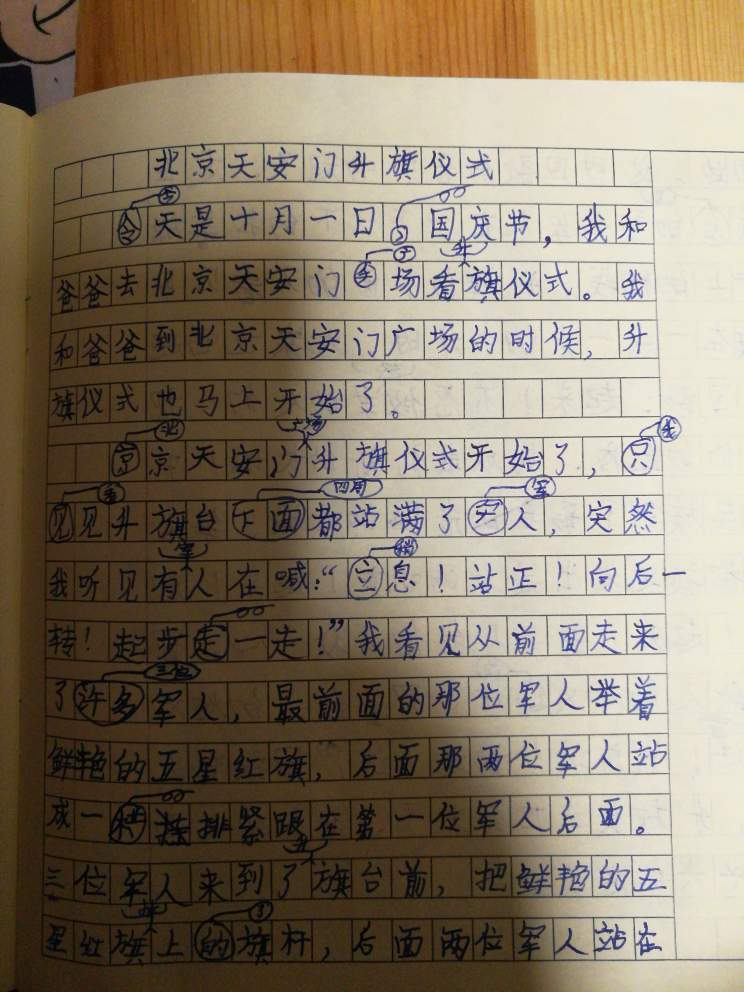 北京天安门升旗仪式
今天是十月一日国庆节，我和
升
广
爸爸去北京天安门场看旗仪式。我
和爸爸到北京天安门广场的时候，升
旗仪式也马上开始了。
北
广场
我
京京天安门升旗仪式开始了，只
看
四周
军
见见升旗台下面都站满了人，突然
军
稍
我听见有人在喊：“立息！站正！向后一
转！起步走一走！”我看见从前面走来
三位
了许多军人，最前面的那位军人举着
鲜艳的五星红旗，后面那两位军人站
成一排紧跟在第一位军人后面。
升
三位军人来到了旗台前，把鲜艳的五
星红旗上的旗杆，后面两位军人站在